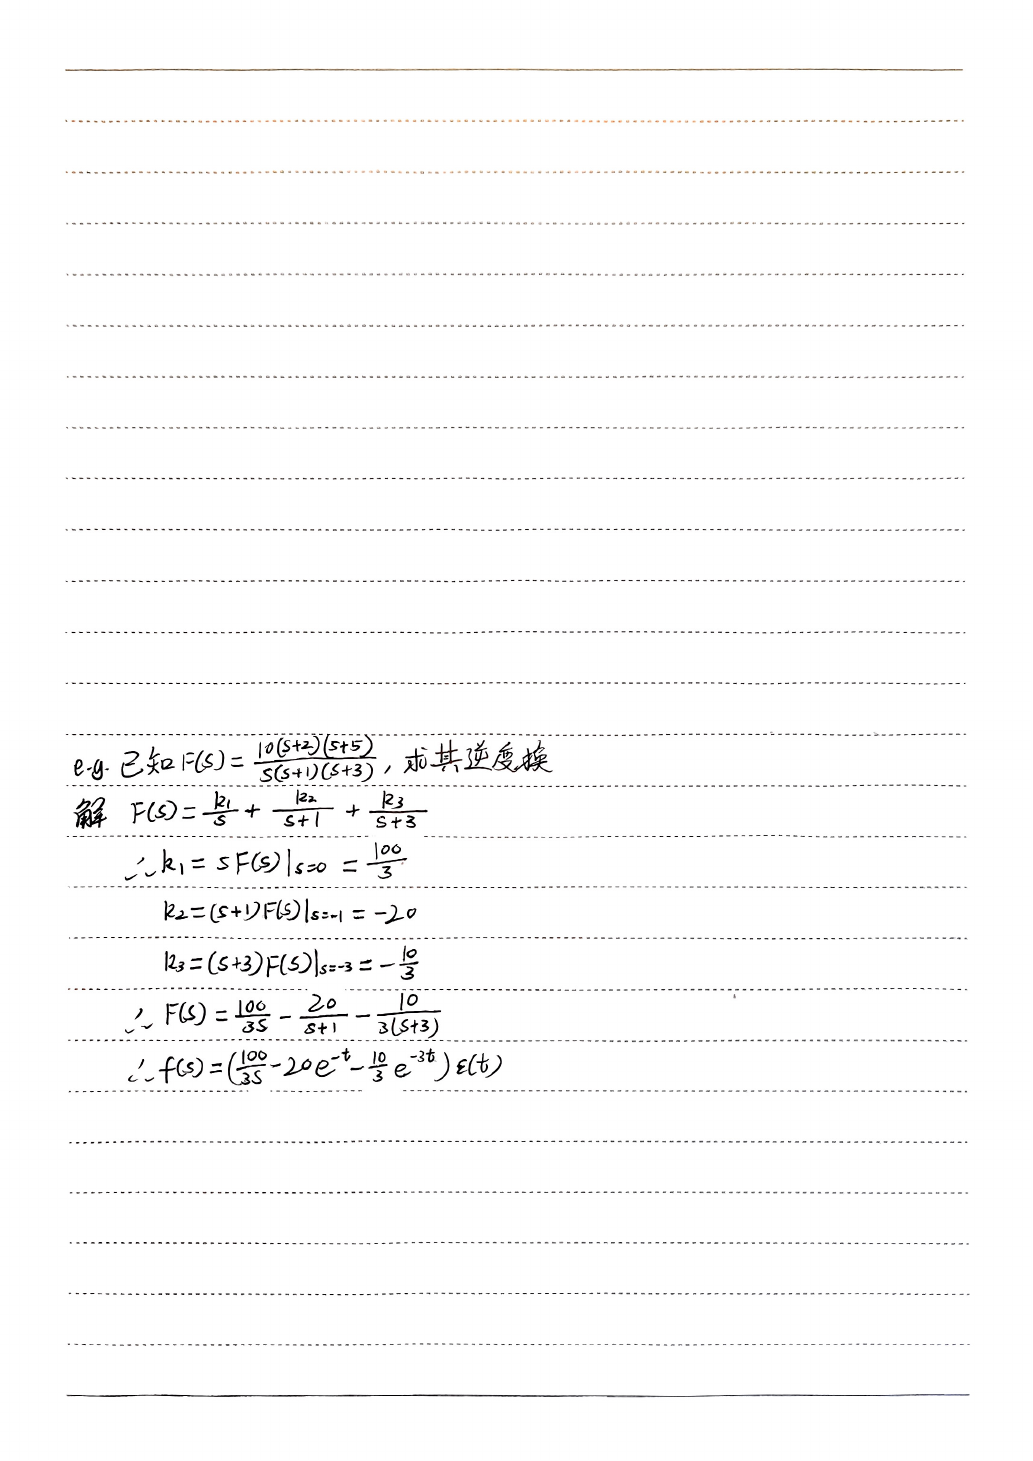 e.g. 已知 F(s) = \frac{10(s+2)(s+5)}{s(s+1)(s+3)}, 求其逆变换
解 F(s) = \frac{k_1}{s} + \frac{k_2}{s+1} + \frac{k_3}{s+3}
∴ k_1 = sF(s)|_{s=0} = \frac{100}{3}
k_2 = (s+1)F(s)|_{s=-1} = -20
k_3 = (s+3)F(s)|_{s=-3} = -\frac{10}{3}
∴ F(s) = \frac{100}{3s} - \frac{20}{s+1} - \frac{10}{3(s+3)}
∴ f(s) = (\frac{100}{3s} - 20e^{-t} - \frac{10}{3}e^{-3t}) ε(t)